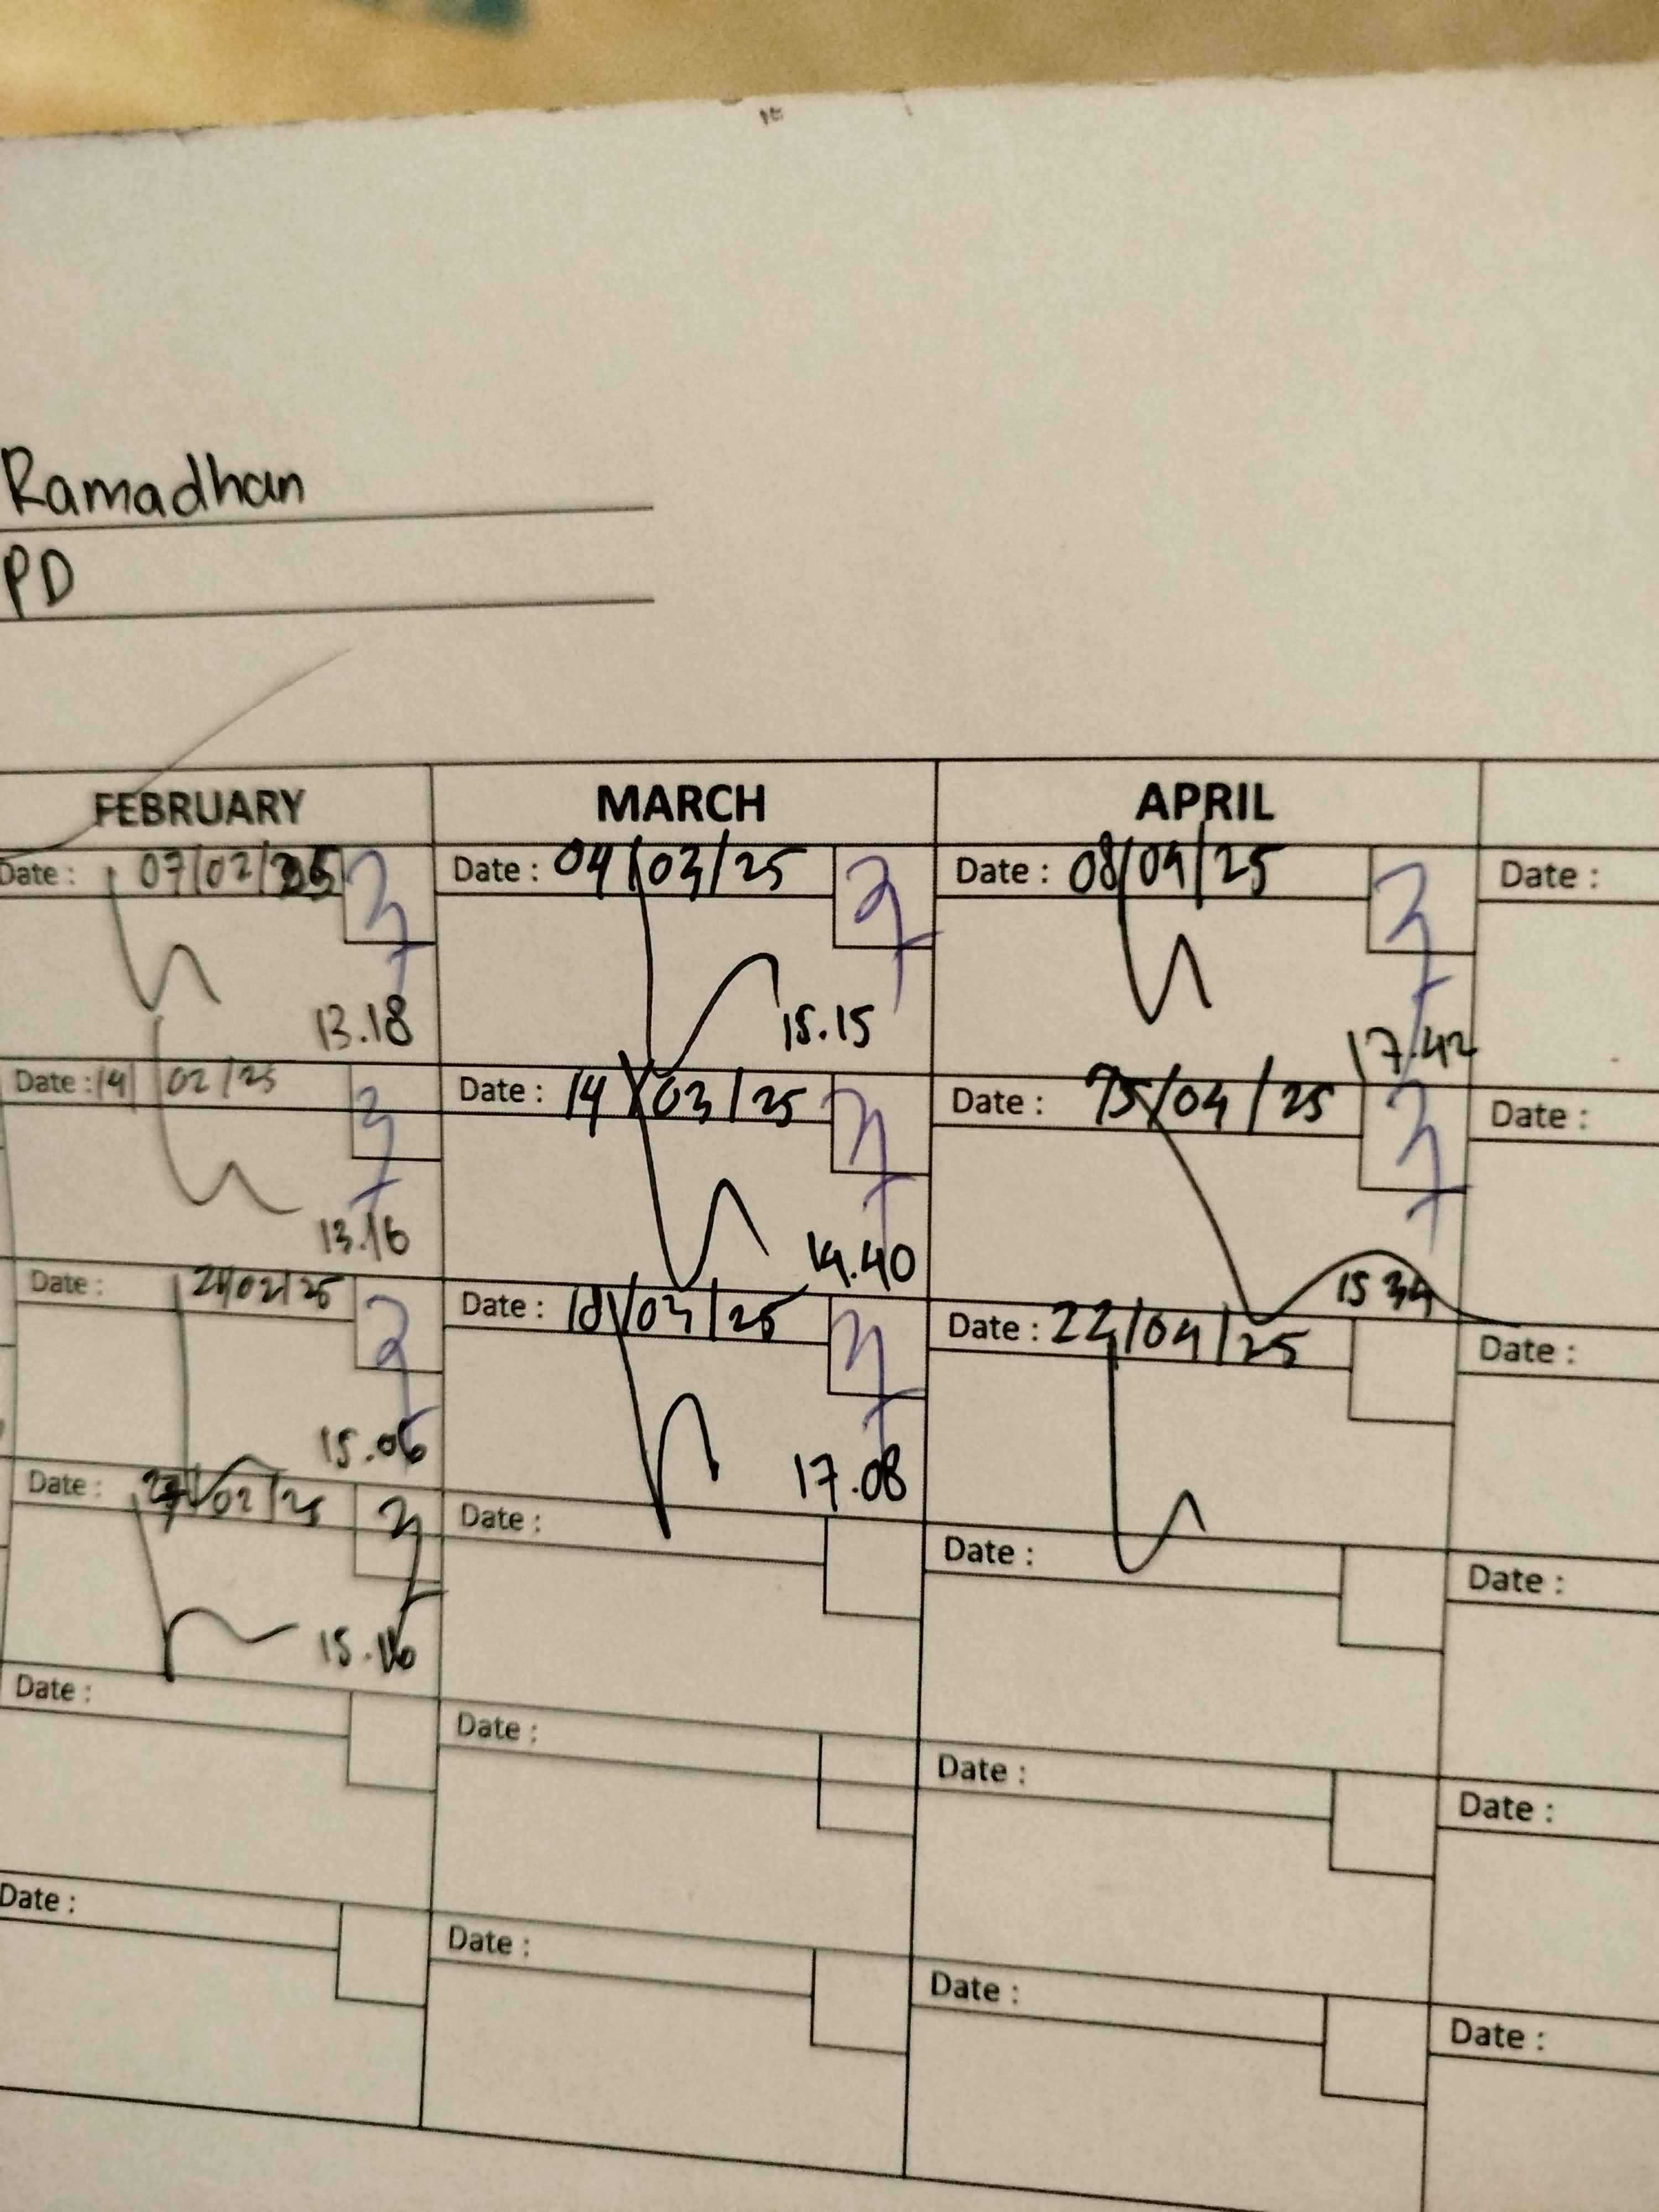 Ramadhan
PD
FEBRUARY MARCH APRIL
Date : 07/02/25 Date : 04/03/25 Date : 08/04/25 Date :
13.18 15.15 17.42
Date : 14/02/25 Date : 14/03/25 Date : 15/04/25 Date :
13.16 14.40 15 34
Date : 21/02/25 Date : 18/03/25 Date : 22/04/25 Date :
15.06 17.08
Date : 27/02/25 Date : Date : Date :
15.16
Date : Date : Date : Date :
Date : Date : Date : Date :